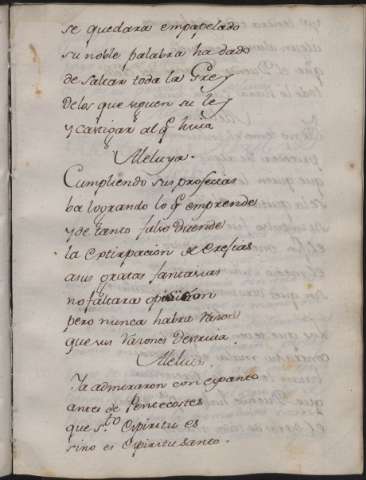 se quedara empapelado
su noble palabra ha dado
de saltar toda la Grey
delos que siguen su ley
y castigar al q.
Aleluya.
Cumpliendo sus profecias
ba logrando lo q emprende
y de tanto falso duende
la extirpacion de eregias
a sus gratas fantasias
no faltara oposicion
pero nunca habra Varon
que sus Varones
Alelu.
Ya admiraron con espanto
antes de Pentecostes
que s.to Espiritu es
sino es Espiritu santo.